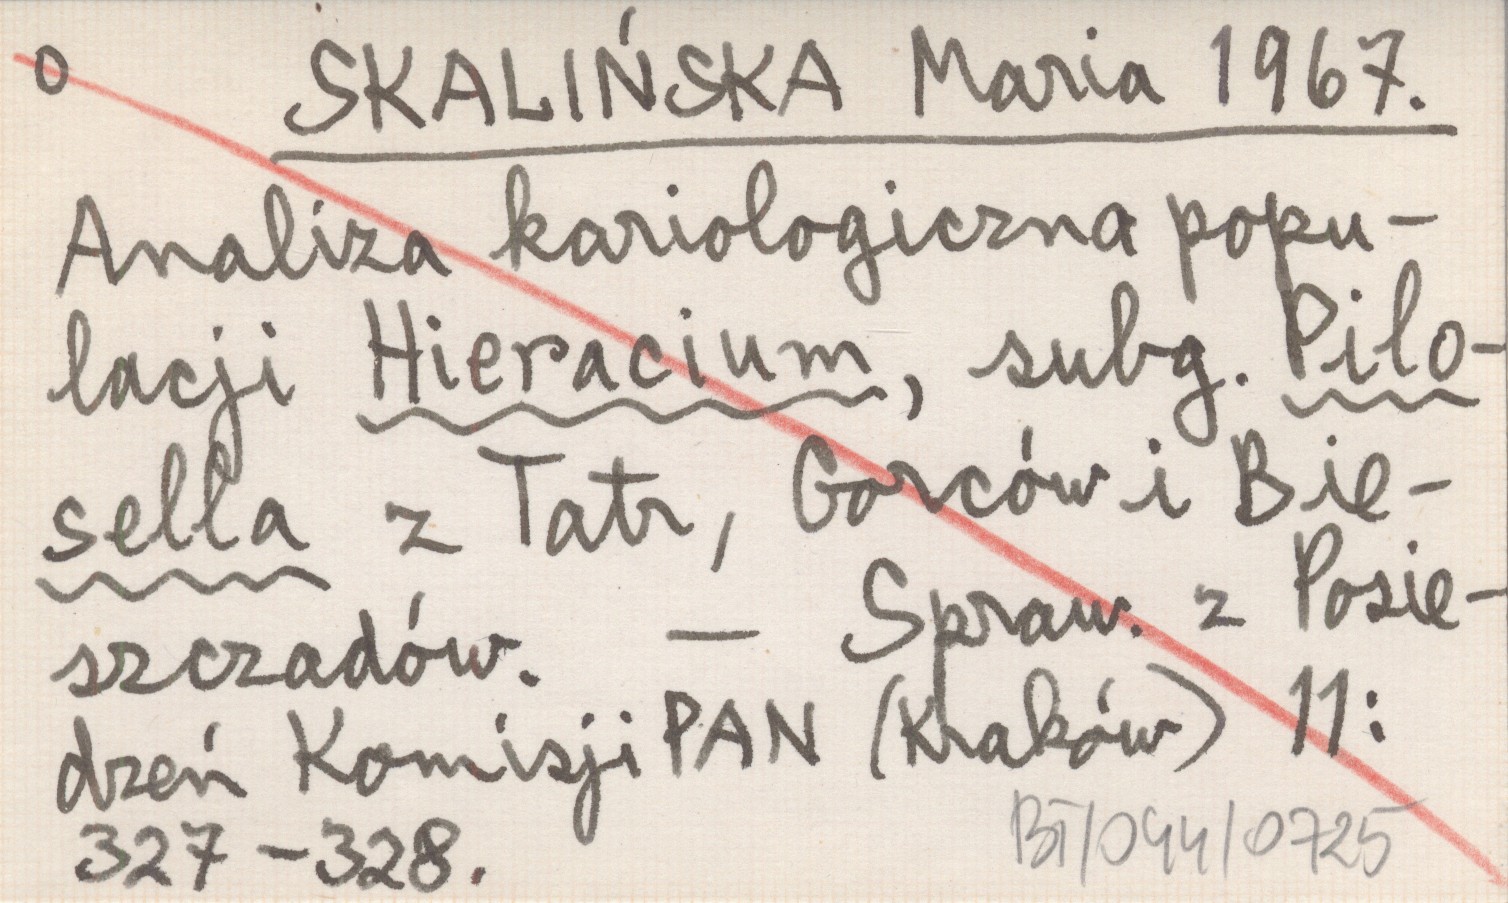 O SKALIŃSKA Maria 1967.
Analiza kariologiczna popu-
lacji Hieracium, subg. Pilo-
sella z Tatr, Gorców i Bie-
szczadów. — Spraw. z Posie-
dzeń Komisji PAN (Kraków) 11:
327-328.
BT/044/0725